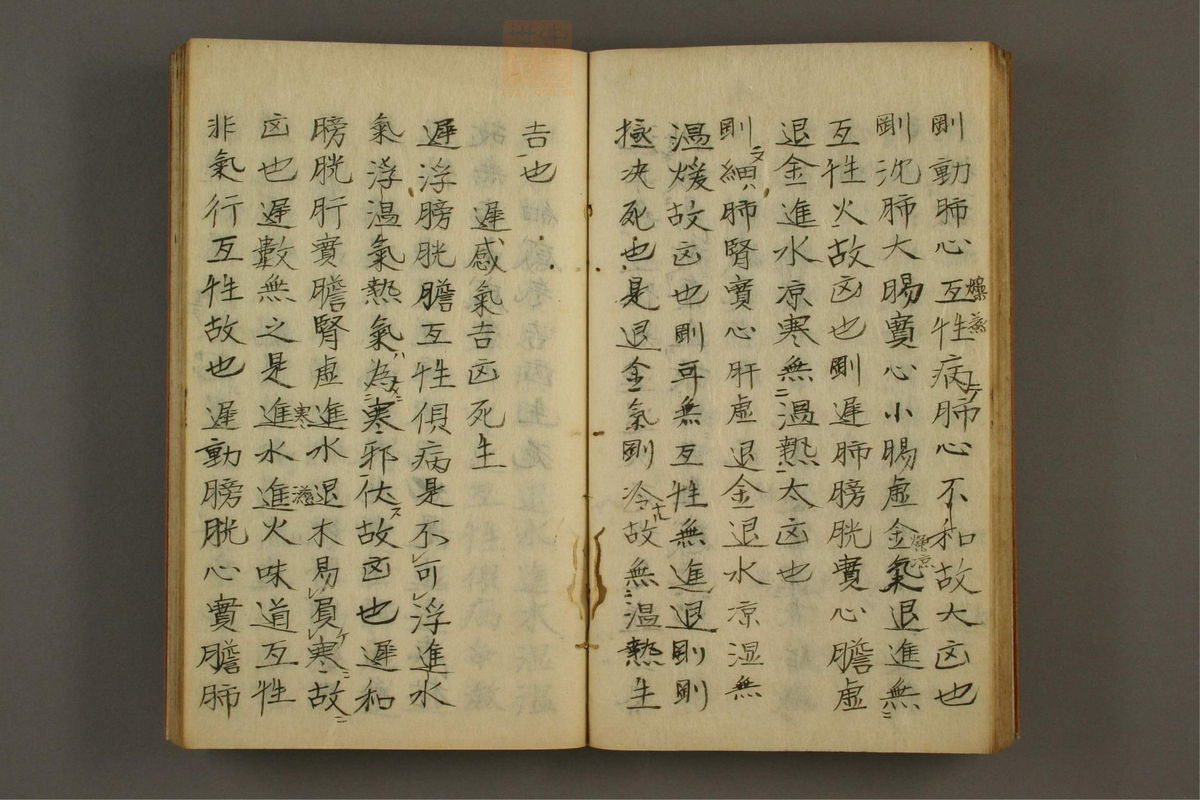 剛動肺心互性病肺心不和故大凶也
剛沈肺大腸實心小腸虛金氣退進無
互性火故凶也剛遲肺膀胱實心膽虛
退金進水凉寒無温熱太凶也
剛細肺腎實心肝虛退金退水凉湿無
温煖故凶也剛耳無互性無進退剛剛
極决死也是退金氣剛冷故無温熱生
吉也　遲感氣吉凶死生
遲浮膀胱膽互性俱病是不可浮進水
氣浮温氣熱氣為寒邪伏故凶也遲和
膀胱肝實膽腎虛進水退木易負寒故
凶也遲數無之是進水進火味道互性
非氣行互性故也遲動膀胱心實膽肺